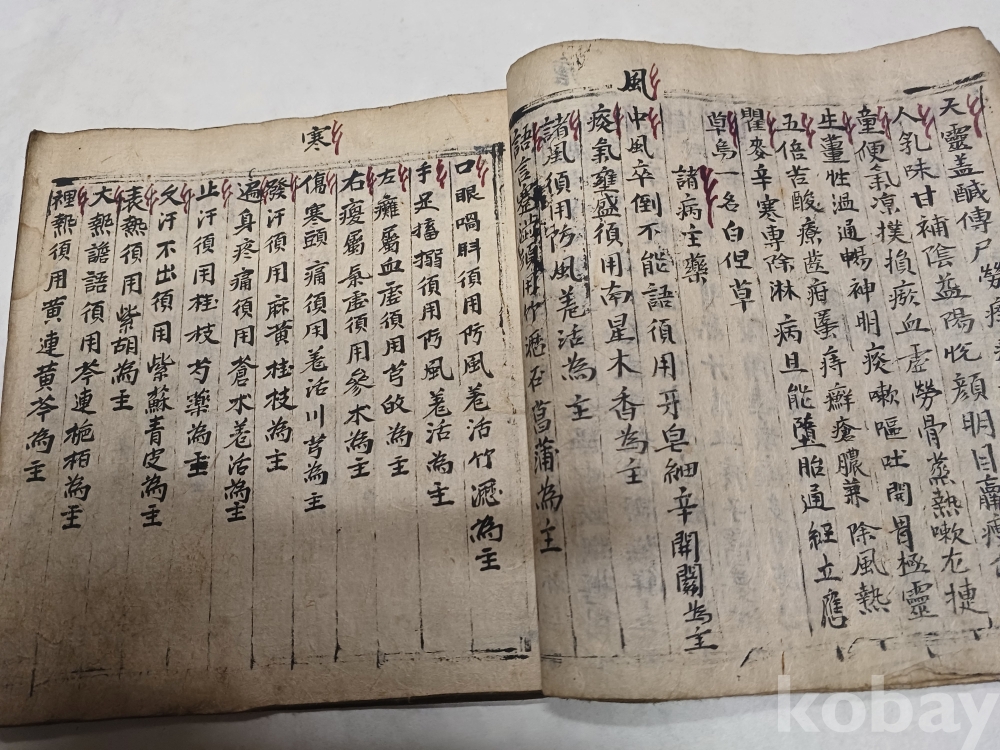 風
天靈盖鹹傳尸勞
人乳味甘補陰益陽悅顔明目羸瘦
童便氣凉撲損瘀血虛勞骨蒸熱嗽尤捷
生薑性過通暢神明痰嗽嘔吐開胃極靈
五倍苦酸療齒疳䘌痔癬瘡膿兼除風熱
瞿麥辛寒專除淋病且能墮胎通經立應
草烏一名白但草
諸病主藥
中風卒倒不能語須用牙皂細辛開關為主
痰氣壅盛須用南星木香為主
諸風須用防風羗活為主
語言蹇澁須用竹瀝石菖蒲為主
寒
口眼喎斜須用防風羗活竹瀝為主
手足搐搦須用防風羗活為主
左癱屬血虛須用芎的為主
右瘓屬氣虛須用參木為主
傷寒頭痛須用羗活川芎為主
發汗須用麻黄桂枝為主
遍身疼痛須用蒼木羗活為主
止汗須用桂枝芍藥為主
久汗不出須用紫蘇青皮為主
表熱須用紫胡為主
大熱譫語須用芩連梔栢為主
裡熱須用黄連黄芩為主
kobay